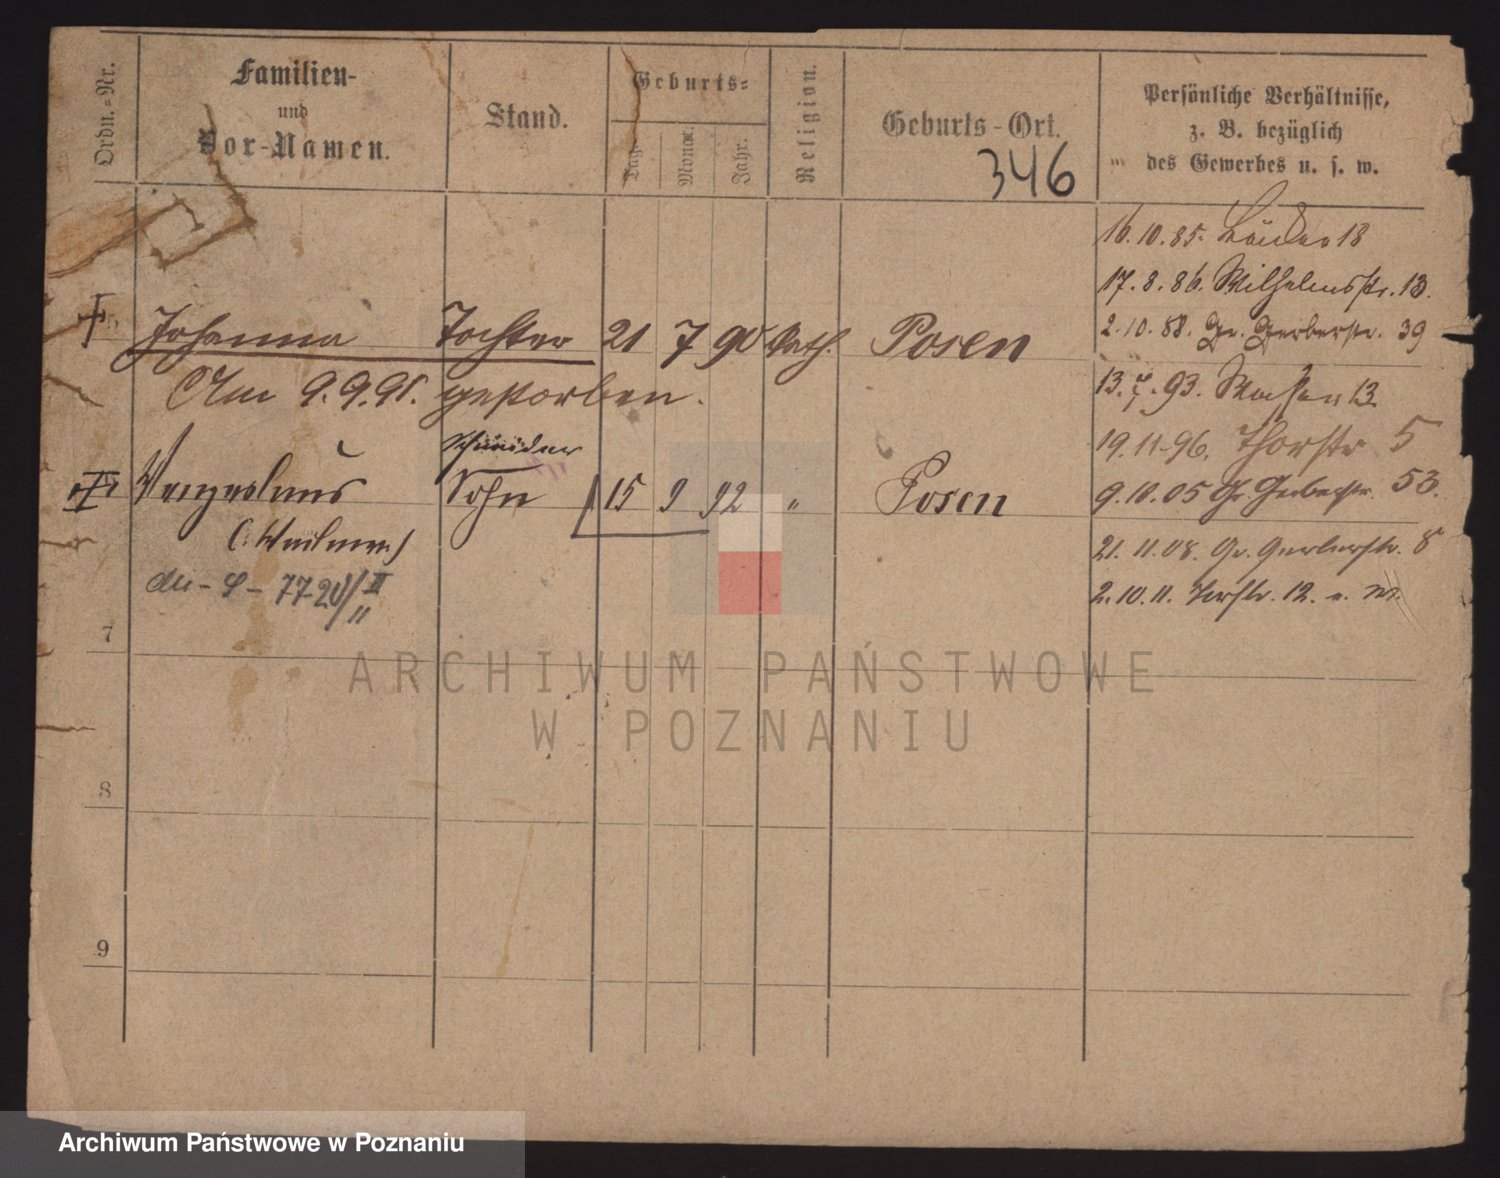 Ordn.-Nr.
Familien-
und
Vor-Namen.
Stand.
Geburts-
Tag.
Monat.
Jahr.
Religion.
Geburts-Ort.
346
Persönliche Verhältnisse,
z. B. bezüglich
des Gewerbes u. s. w.
16.10.85. 18
17.8.86. Wilhelmsstr. 13.
2.10.88. Gr. Gerberstr. 39
Johanna Tochter 21 7 90 kath. Posen
Am 9.9.91. gestorben.
13.7.93. 13
19.11.96. Thorstr 5
Schneider
Wenzeslaus Sohn 15 9 92 " Posen
9.10.05 Gr. Gerberstr. 53.
21.11.08. Gr. Gerberstr. 8
77-20/II
11
2.10.11. Torstr. 12.
7
8
9
ARCHIWUM PAŃSTWOWE
W POZNANIU
Archiwum Państwowe w Poznaniu